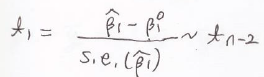 t₁ = (β̂₁ − β₁⁰) / (s.e.(β̂₁)) ~ tₙ₋₂